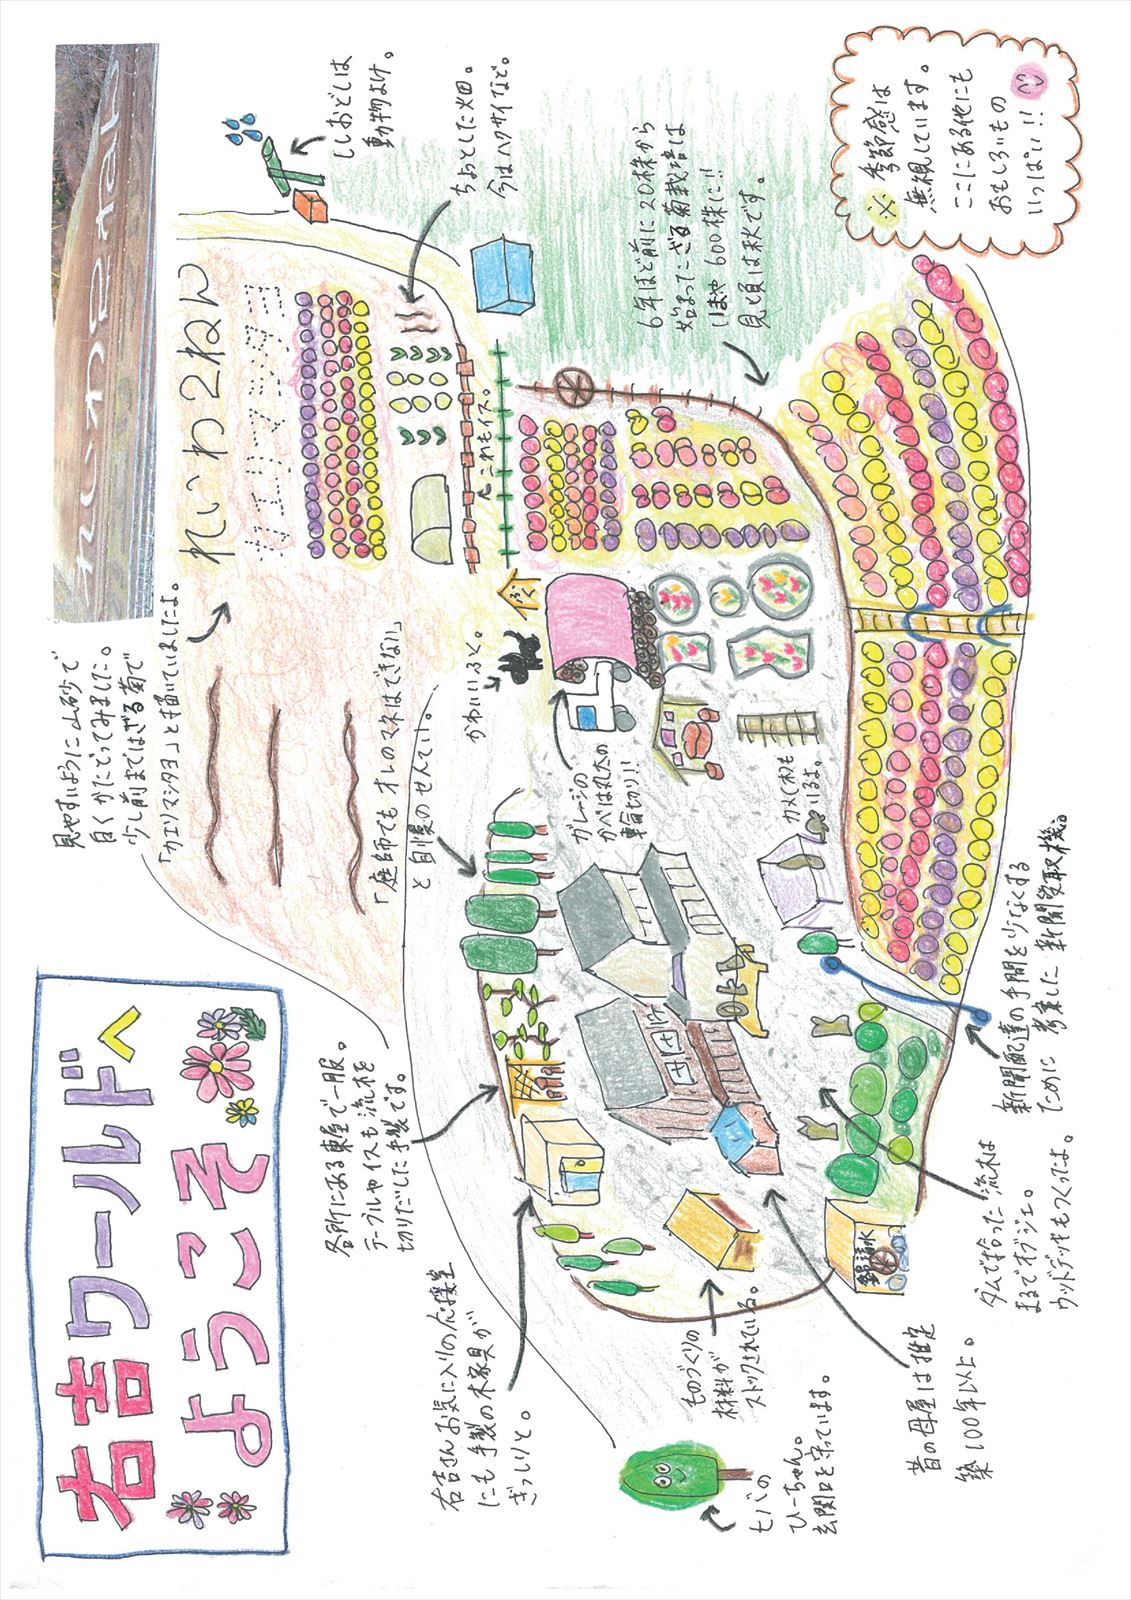 右吉ワールドへ
ようこそ
見やすいように山砂で
白くかたどってみました。
少し前まではざる菊で
「カエリマシタヨ」と描いていましたよ。
れいわ2ねん
れいわ2ねん
ししおどしは
動物よけ。
ちょっとした畑。
今はハクサイなど。
これもイス。
6年ほど前に20株から
始まったざる菊栽培は
いまや600株に!!
見頃は秋です。
※季節感は
無視しています。
ここにある他にも
おもしろいもの
いっぱい!!
「庭師でもオレのマネはできない」
と自慢のせんてい。
かわいいふく。
ふく
ガレージの
かべは丸太の
輪切り!!
カメくわも
いるよ。
各所にある東屋で一服。
テーブルやイスも流木を
切りだした手製です。
右吉さんお気に入りの応接室
にも手製の木家具が
ぎっしりと。
ものづくりの
材料が
ストックされている。
ヒバの
ひーちゃん。
玄関口を守っています。
昔の母屋は推定
築100年以上。
錦清水
ダムで拾った流木は
まるでオブジェ。
ウッドデッキもつくったよ。
新聞配達の手間を少なくする
ために考案した新聞受取機。